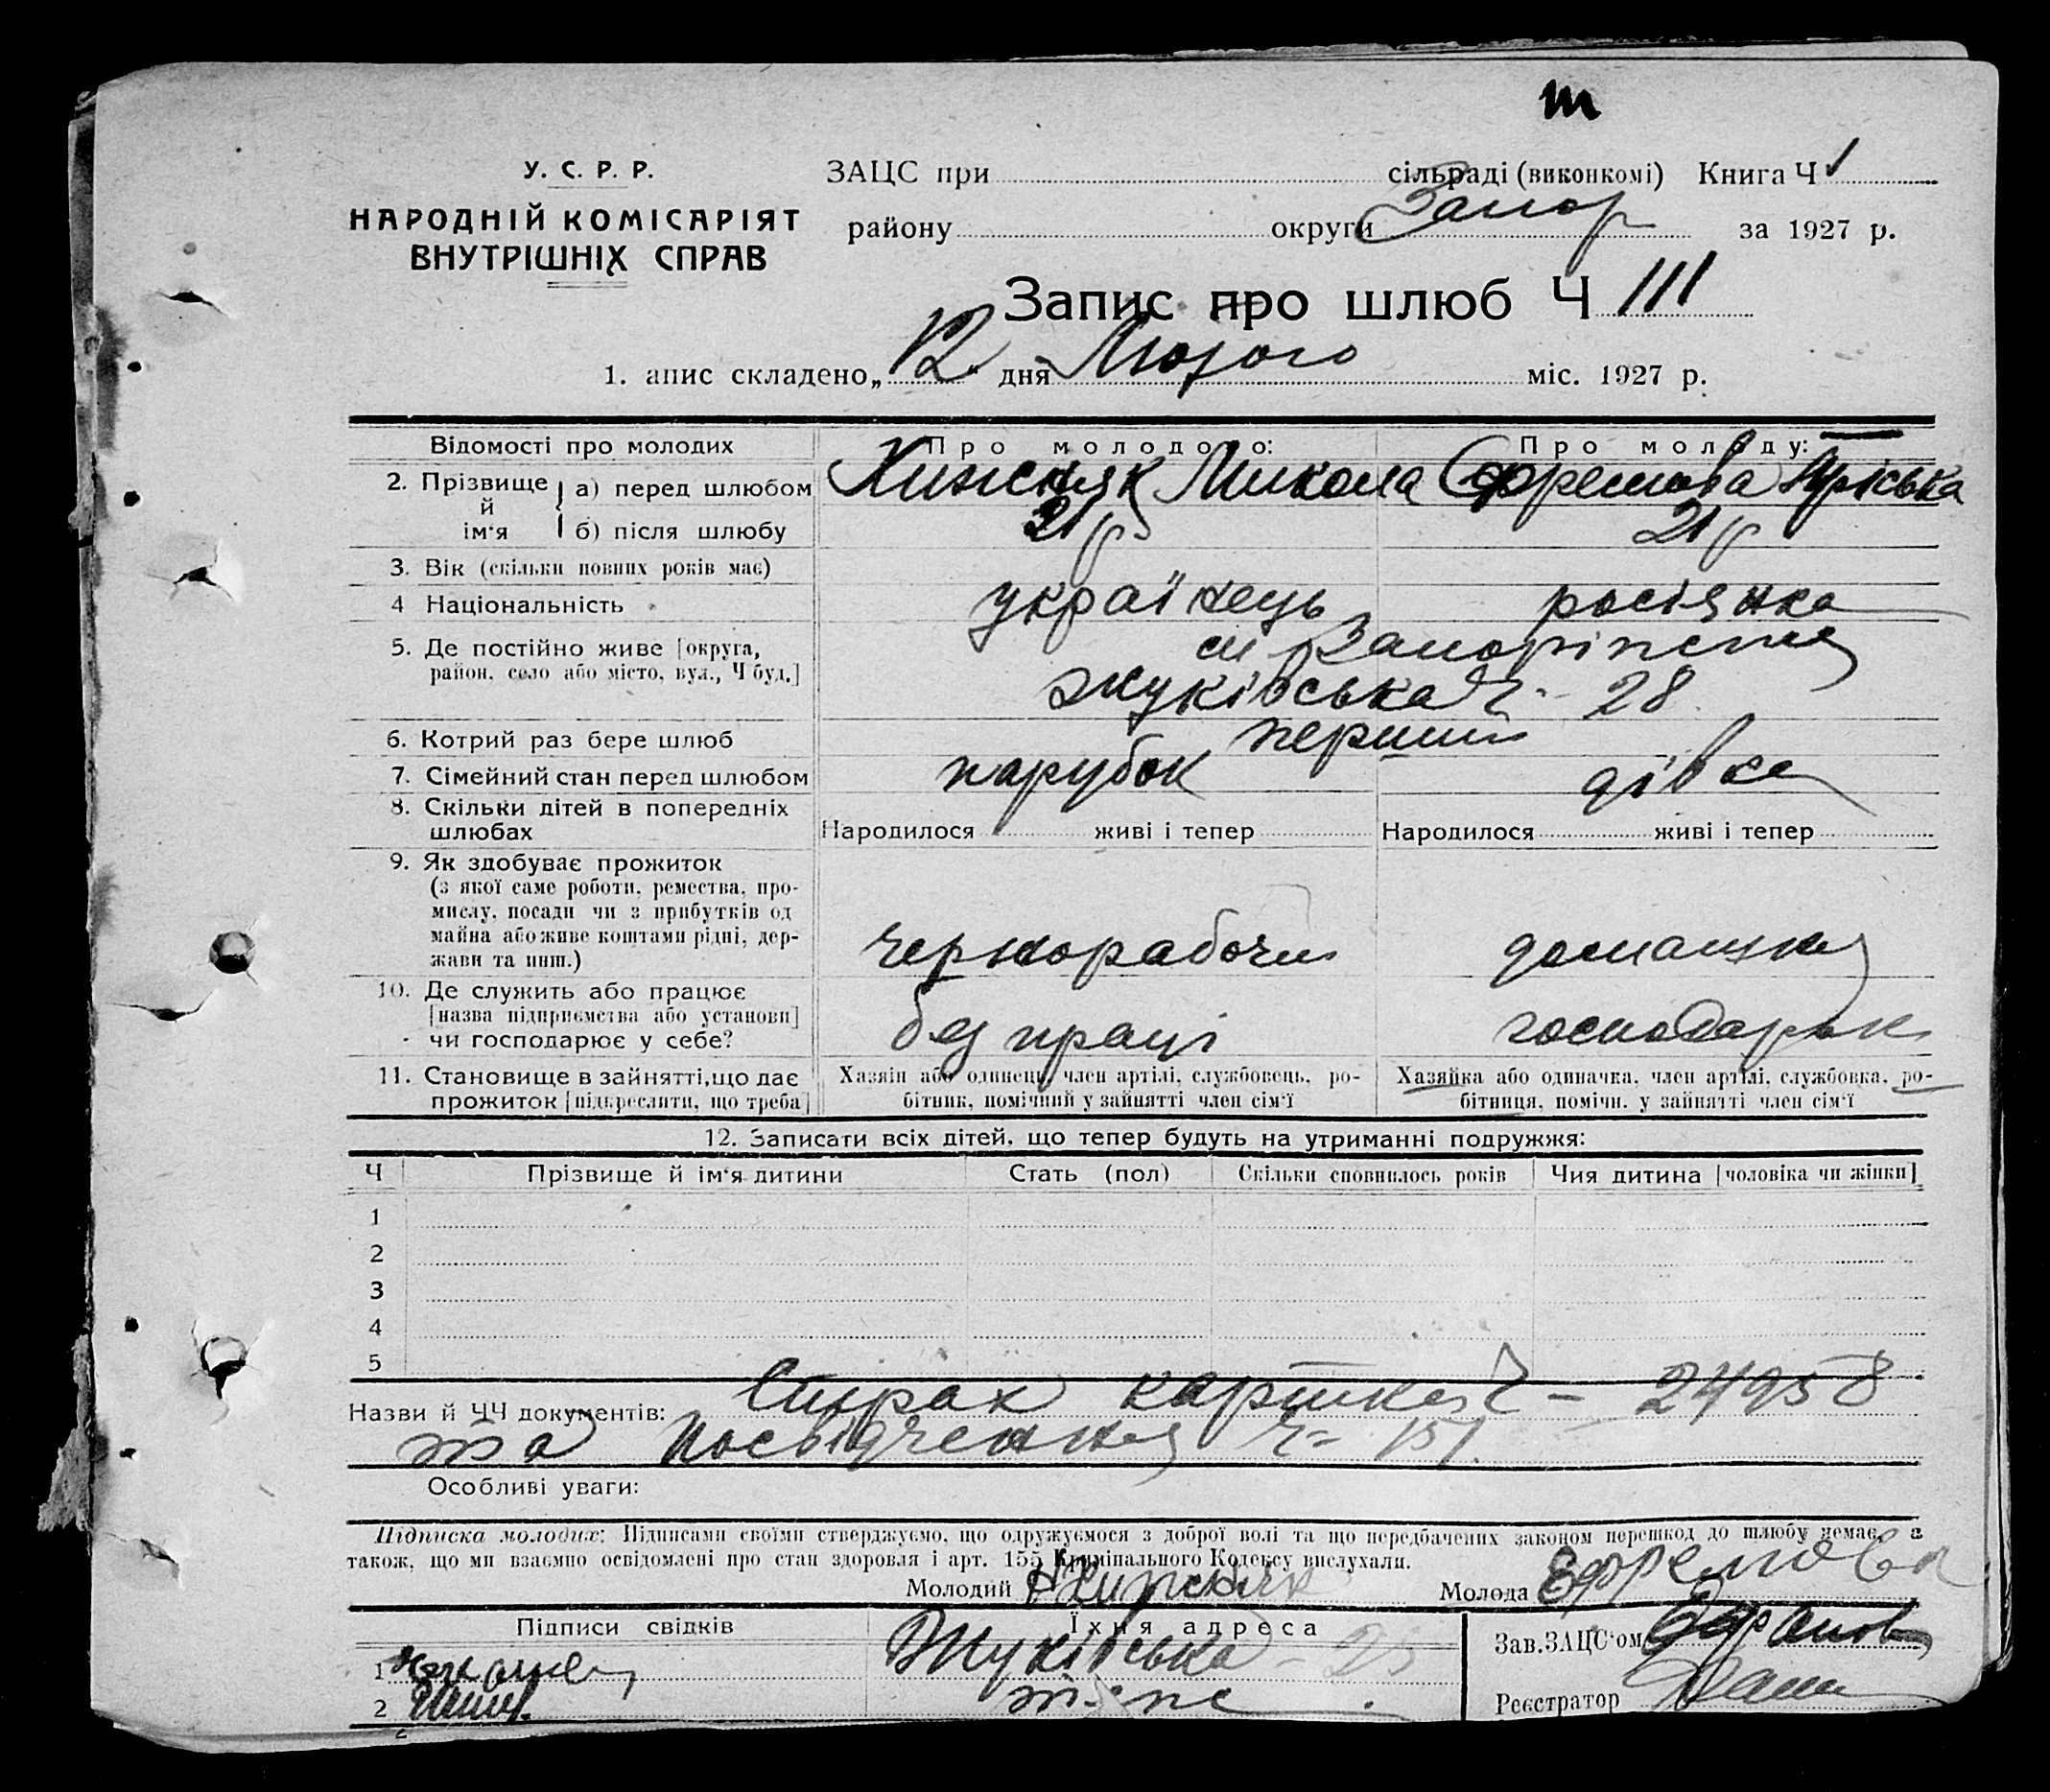 т
У. С. Р. Р.
НАРОДНІЙ КОМІСАРІЯТ
ВНУТРІШНІХ СПРАВ
ЗАЦС при сільраді (виконкомі) Книга Ч 1
району округи Запор за 1927 р.
Запис про шлюб Ч 111
1. апис складено „12" дня Лютого міс. 1927 р.
Відомості про молодих
Про молодого:
Про молоду:
2. Прізвище й ім'я
а) перед шлюбом
Хижняк Микола
Єфремова Аріська
б) після шлюбу
21 р
21 р
3. Вік (скільки повних років має)
4 Національність
українець
росіянка
5. Де постійно живе [округа,
район, село або місто, вул., Ч буд.]
м Запоріжжя
Жуківська Ч - 28
6. Котрий раз бере шлюб
перший
7. Сімейний стан перед шлюбом
парубок
дівка
8. Скільки дітей в попередніх
шлюбах
Народилося живі і тепер
Народилося живі і тепер
9. Як здобуває прожиток
(з якої саме роботи, ремества, про-
мислу, посади чи з прибутків од
майна або живе коштами рідні, дер-
жави та инш.)
чернорабочий
домашня
10. Де служить або працює
[назва підприємства або установи]
чи господарює у себе?
без праці
господарка
11. Становище в зайнятті, що дає
прожиток [підкреслити, що треба]
Хазяїн або одинець, член артілі, службовець, ро-
бітник, помічний у зайнятті член сім'ї
Хазяйка або одиначка, член артілі, службовка, ро-
бітниця, помічн. у зайнятті член сім'ї
12. Записати всіх дітей, що тепер будуть на утриманні подружжя:
Ч Прізвище й ім'я дитини Стать (пол) Скільки сповнилось років Чия дитина [чоловіка чи жінки]
1
2
3
4
5
Назви й ЧЧ документів: Страх картка Ч - 24958
та посвідчення Ч - 151.
Особливі уваги:
Підписка молодих: Підписами своїми стверджуємо, що одружуємося з доброї волі та що передбачених законом перешкод до шлюбу немає, а
також, що ми взаємно освідомлені про стан здоровля і арт. 155 Кримінального Кодексу вислухали.
Молодий Хижняк Молода Ефремова
Підписи свідків
Їхня адреса
Зав. ЗАЦС'ом
1 Жуківська - 25
2
Реєстратор